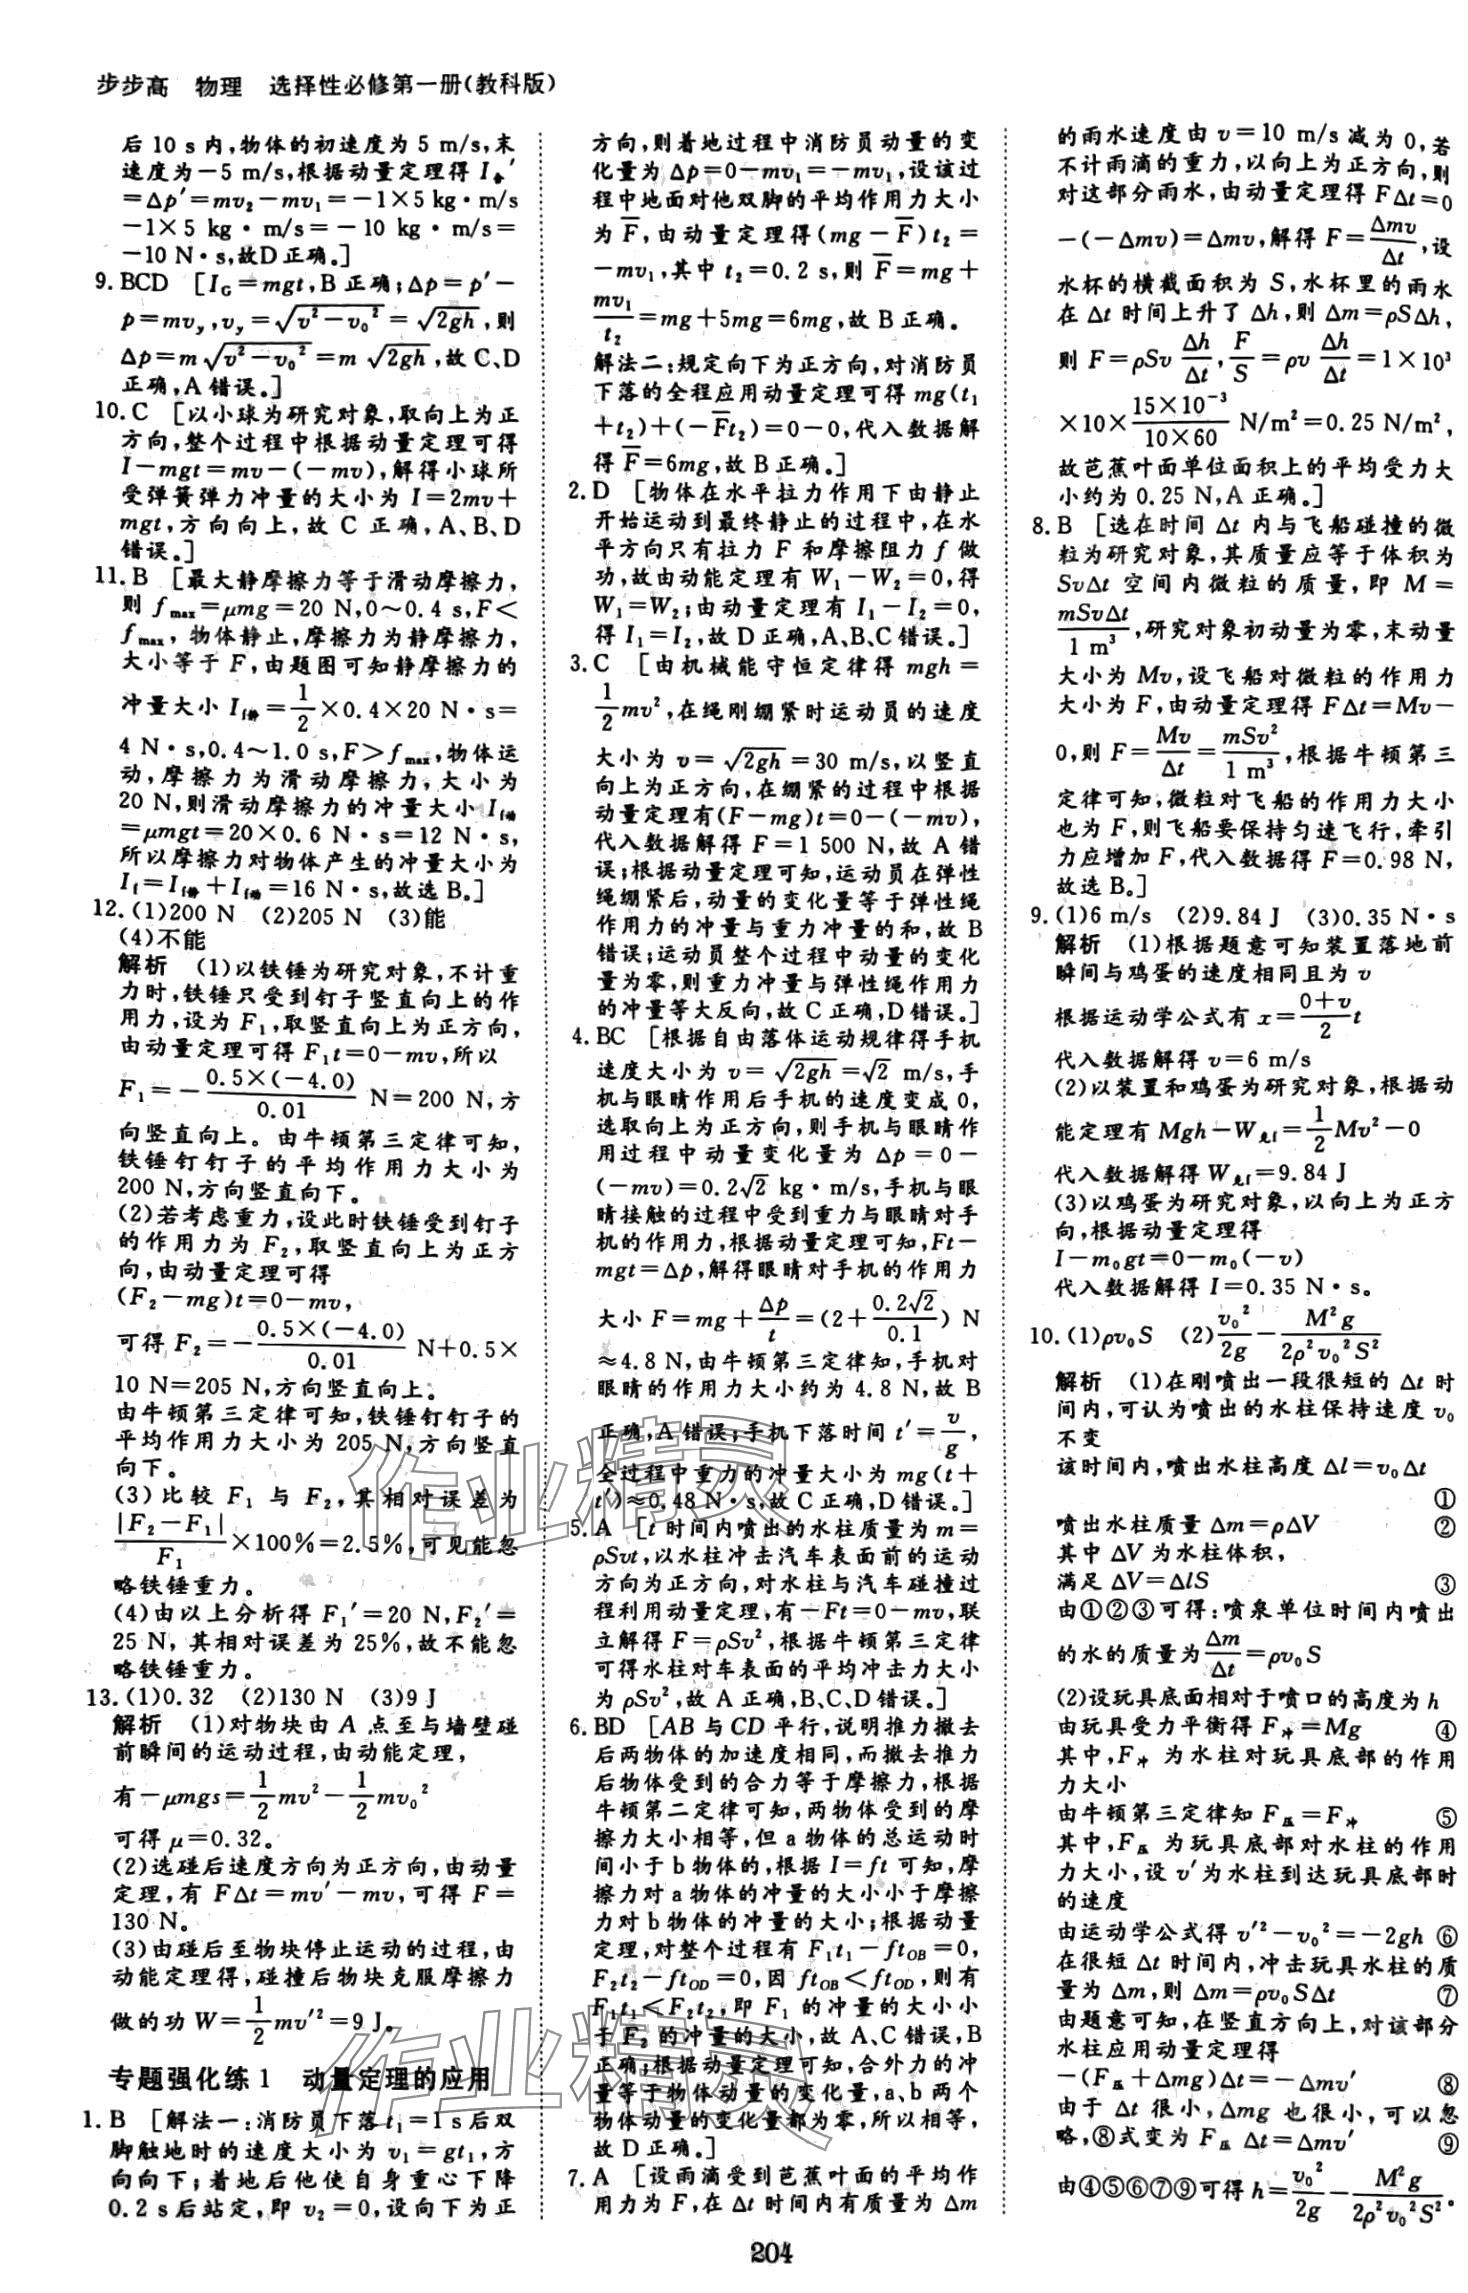 步步高 物理 选择性必修第一册(教科版)
后10 s内,物体的初速度为5 m/s,末
速度为-5 m/s,根据动量定理得I合′
=Δp′=mv₂-mv₁=-1×5 kg·m/s
-1×5 kg·m/s=-10 kg·m/s=
-10 N·s,故D正确。]
9.BCD [I_G=mgt,B正确;Δp=p′-
p=mv_y,v_y=√(v²-v₀²)=√(2gh),则
Δp=m√(v²-v₀²)=m√(2gh),故C、D
正确,A错误。]
10.C [以小球为研究对象,取向上为正
方向,整个过程中根据动量定理可得
I-mgt=mv-(-mv),解得小球所
受弹簧弹力冲量的大小为I=2mv+
mgt,方向向上,故C正确,A、B、D
错误。]
11.B [最大静摩擦力等于滑动摩擦力,
则f_max=μmg=20 N,0~0.4 s,F<
f_max,物体静止,摩擦力为静摩擦力,
大小等于F,由题图可知静摩擦力的
冲量大小I_f静=1/2×0.4×20 N·s=
4 N·s,0.4~1.0 s,F>f_max,物体运
动,摩擦力为滑动摩擦力,大小为
20 N,则滑动摩擦力的冲量大小I_f动
=μmgt=20×0.6 N·s=12 N·s,
所以摩擦力对物体产生的冲量大小为
I_f=I_f静+I_f动=16 N·s,故选B。]
12.(1)200 N (2)205 N (3)能
(4)不能
解析 (1)以铁锤为研究对象,不计重
力时,铁锤只受到钉子竖直向上的作
用力,设为F₁,取竖直向上为正方向,
由动量定理可得F₁t=0-mv,所以
F₁=-0.5×(-4.0)/0.01 N=200 N,方
向竖直向上。由牛顿第三定律可知,
铁锤钉钉子的平均作用力大小为
200 N,方向竖直向下。
(2)若考虑重力,设此时铁锤受到钉子
的作用力为F₂,取竖直向上为正方
向,由动量定理可得
(F₂-mg)t=0-mv,
可得F₂=-0.5×(-4.0)/0.01 N+0.5×
10 N=205 N,方向竖直向上。
由牛顿第三定律可知,铁锤钉钉子的
平均作用力大小为205 N,方向竖直
向下。
(3)比较F₁与F₂,其相对误差为
|F₂-F₁|/F₁×100%=2.5%,可见能忽
略铁锤重力。
(4)由以上分析得F₁′=20 N,F₂′=
25 N,其相对误差为25%,故不能忽
略铁锤重力。
13.(1)0.32 (2)130 N (3)9 J
解析 (1)对物块由A点至与墙壁碰
前瞬间的运动过程,由动能定理,
有-μmgs=1/2mv²-1/2mv₀²
可得μ=0.32。
(2)选碰后速度方向为正方向,由动量
定理,有FΔt=mv′-mv,可得F=
130 N。
(3)由碰后至物块停止运动的过程,由
动能定理得,碰撞后物块克服摩擦力
做的功W=1/2mv′²=9 J。
专题强化练1 动量定理的应用
1.B [解法一:消防员下落t₁=1 s后双
脚触地时的速度大小为v₁=gt₁,方
向向下;着地后他使自身重心下降
0.2 s后站定,即v₂=0,设向下为正
方向,则着地过程中消防员动量的变
化量为Δp=0-mv₁=-mv₁,设该过
程中地面对他双脚的平均作用力大小
为F̄,由动量定理得(mg-F̄)t₂=
-mv₁,其中t₂=0.2 s,则F̄=mg+
mv₁/t₂=mg+5mg=6mg,故B正确。
解法二:规定向下为正方向,对消防员
下落的全程应用动量定理可得mg(t₁
+t₂)+(-F̄t₂)=0-0,代入数据解
得F̄=6mg,故B正确。]
2.D [物体在水平拉力作用下由静止
开始运动到最终静止的过程中,在水
平方向只有拉力F和摩擦阻力f做
功,故由动能定理有W₁-W₂=0,得
W₁=W₂;由动量定理有I₁-I₂=0,
得I₁=I₂,故D正确,A、B、C错误。]
3.C [由机械能守恒定律得mgh=
1/2mv²,在绳刚绷紧时运动员的速度
大小为v=√(2gh)=30 m/s,以竖直
向上为正方向,在绷紧的过程中根据
动量定理有(F-mg)t=0-(-mv),
代入数据解得F=1 500 N,故A错
误;根据动量定理可知,运动员在弹性
绳绷紧后,动量的变化量等于弹性绳
作用力的冲量与重力冲量的和,故B
错误;运动员整个过程中动量的变化
量为零,则重力冲量与弹性绳作用力
的冲量等大反向,故C正确,D错误。]
4.BC [根据自由落体运动规律得手机
速度大小为v=√(2gh)=√2 m/s,手
机与眼睛作用后手机的速度变成0,
选取向上为正方向,则手机与眼睛作
用过程中动量变化量为Δp=0-
(-mv)=0.2√2 kg·m/s,手机与眼
睛接触的过程中受到重力与眼睛对手
机的作用力,根据动量定理可知,Ft-
mgt=Δp,解得眼睛对手机的作用力
大小F=mg+Δp/t=(2+0.2√2/0.1) N
≈4.8 N,由牛顿第三定律知,手机对
眼睛的作用力大小约为4.8 N,故B
正确,A错误;手机下落时间t′=v/g,
全过程中重力的冲量大小为mg(t+
t′)≈0.48 N·s,故C正确,D错误。]
5.A [t时间内喷出的水柱质量为m=
ρSvt,以水柱冲击汽车表面前的运动
方向为正方向,对水柱与汽车碰撞过
程利用动量定理,有-Ft=0-mv,联
立解得F=ρSv²,根据牛顿第三定律
可得水柱对车表面的平均冲击力大小
为ρSv²,故A正确,B、C、D错误。]
6.BD [AB与CD平行,说明推力撤去
后两物体的加速度相同,而撤去推力
后物体受到的合力等于摩擦力,根据
牛顿第二定律可知,两物体受到的摩
擦力大小相等,但a物体的总运动时
间小于b物体的,根据I=ft可知,摩
擦力对a物体的冲量的大小小于摩擦
力对b物体的冲量的大小;根据动量
定理,对整个过程有F₁t₁-ft_OB=0,
F₂t₂-ft_OD=0,因ft_OB<ft_OD,则有
F₁t₁<F₂t₂,即F₁的冲量的大小小
于F₂的冲量的大小,故A、C错误,B
正确;根据动量定理可知,合外力的冲
量等于物体动量的变化量,a、b两个
物体动量的变化量都为零,所以相等,
故D正确。]
7.A [设雨滴受到芭蕉叶面的平均作
用力为F,在Δt时间内有质量为Δm
的雨水速度由v=10 m/s减为0,若
不计雨滴的重力,以向上为正方向,则
对这部分雨水,由动量定理得FΔt=0
-(-Δmv)=Δmv,解得F=Δmv/Δt,设
水杯的横截面积为S,水杯里的雨水
在Δt时间上升了Δh,则Δm=ρSΔh,
则F=ρSvΔh/Δt,F/S=ρvΔh/Δt=1×10³
×10×15×10⁻³/10×60 N/m²=0.25 N/m²,
故芭蕉叶面单位面积上的平均受力大
小约为0.25 N,A正确。]
8.B [选在时间Δt内与飞船碰撞的微
粒为研究对象,其质量应等于体积为
SvΔt空间内微粒的质量,即M=
mSvΔt/1 m³,研究对象初动量为零,末动量
大小为Mv,设飞船对微粒的作用力
大小为F,由动量定理得FΔt=Mv-
0,则F=Mv/Δt=mSv²/1 m³,根据牛顿第三
定律可知,微粒对飞船的作用力大小
也为F,则飞船要保持匀速飞行,牵引
力应增加F,代入数据得F=0.98 N,
故选B。]
9.(1)6 m/s (2)9.84 J (3)0.35 N·s
解析 (1)根据题意可知装置落地前
瞬间与鸡蛋的速度相同且为v
根据运动学公式有x=(0+v)/2 t
代入数据解得v=6 m/s
(2)以装置和鸡蛋为研究对象,根据动
能定理有Mgh-W克f=1/2Mv²-0
代入数据解得W克f=9.84 J
(3)以鸡蛋为研究对象,以向上为正方
向,根据动量定理得
I-m₀gt=0-m₀(-v)
代入数据解得I=0.35 N·s。
10.(1)ρv₀S (2)v₀²/2g-M²g/2ρ²v₀²S²
解析 (1)在刚喷出一段很短的Δt时
间内,可认为喷出的水柱保持速度v₀
不变
该时间内,喷出水柱高度Δl=v₀Δt
①
喷出水柱质量Δm=ρΔV ②
其中ΔV为水柱体积,
满足ΔV=ΔlS ③
由①②③可得:喷泉单位时间内喷出
的水的质量为Δm/Δt=ρv₀S
(2)设玩具底面相对于喷口的高度为h
由玩具受力平衡得F冲=Mg ④
其中,F冲为水柱对玩具底部的作用
力大小
由牛顿第三定律知F压=F冲 ⑤
其中,F压为玩具底部对水柱的作用
力大小,设v′为水柱到达玩具底部时
的速度
由运动学公式得v′²-v₀²=-2gh ⑥
在很短Δt时间内,冲击玩具水柱的质
量为Δm,则Δm=ρv₀SΔt ⑦
由题意可知,在竖直方向上,对该部分
水柱应用动量定理得
-(F压+Δmg)Δt=-Δmv′ ⑧
由于Δt很小,Δmg也很小,可以忽
略,⑧式变为F压Δt=Δmv′ ⑨
由④⑤⑥⑦⑨可得h=v₀²/2g-M²g/2ρ²v₀²S²。
204
作业精灵
作业精灵